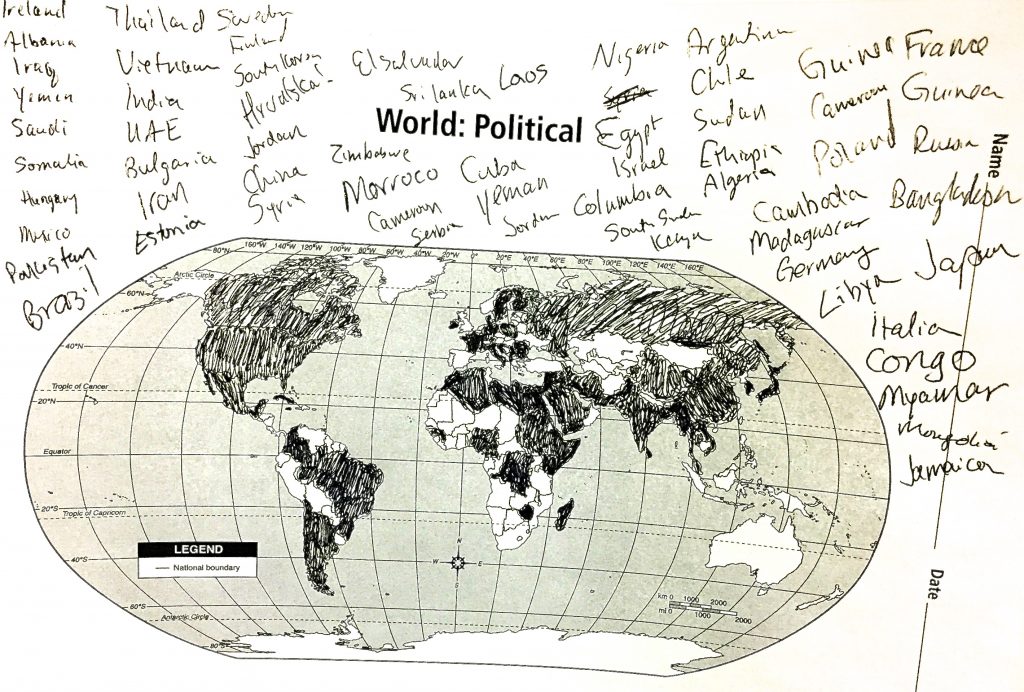 Ireland
Albania
Iraq
Yemen
Saudi
Somalia
Hungary
Mexico
Pakistan
Brazil
Thailand
Vietnam
India
UAE
Bulgaria
Iran
Estonia
Sweden
Finland
South Korea
Hrvatska
Jordan
China
Syria
El Salvador
Sri lanka
Laos
World: Political
Zimbabwe
Morroco
Cuba
Cameroon
Yeman
Serbia
Jordan
Nigeria
Syria
Egypt
Israel
Columbia
South Sudan
Kenya
Argentina
Chle
Sudan
Ethiopia
Algeria
Cambodia
Madagascar
Germany
Libya
Guinea
Cameroon
Poland
France
Guinea
Russia
Bangladesh
Japan
Italia
Congo
Myanmar
Mongolia
Jamaica
Name
Date
80°N 160°W 140°W 120°W 100°W 80°W 60°W 40°W 20°W 0° 20°E 40°E 60°E 80°E 100°E 120°E 140°E 160°E
Arctic Circle
60°N
40°N
Tropic of Cancer
20°N
Equator
0°
20°S
Tropic of Capricorn
40°S
60°S
Antarctic Circle
80°S
LEGEND
National boundary
N
W E
S
km 0 1000 2000
mi 0 1000 2000